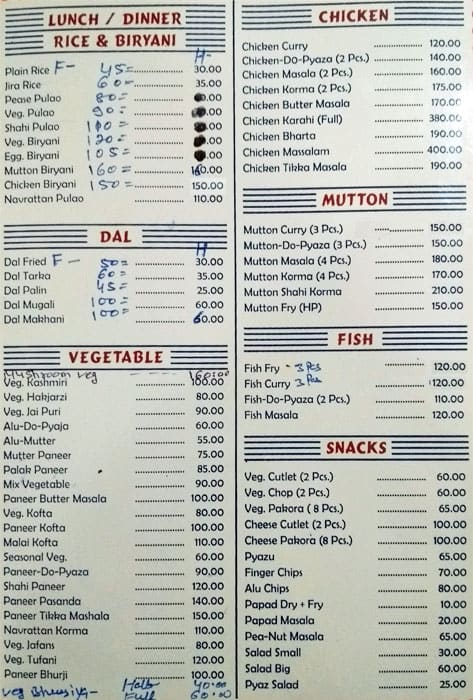 LUNCH / DINNER
RICE & BIRYANI
H-
Plain Rice F- 45= 30.00
Jira Rice 60- 35.00
Pease Pulao 80= .00
Veg. Pulao 90= .00
Shahi Pulao 100= .00
Veg. Biryani 120= .00
Egg. Biryani 105= .00
Mutton Biryani 160= 160.00
Chicken Biryani 150= 150.00
Navrattan Pulao 110.00
DAL
H
Dal Fried F- 50= 30.00
Dal Tarka 60= 35.00
Dal Palin 45= 25.00
Dal Mugali 100= 60.00
Dal Makhani 100= 60.00
VEGETABLE
Mushroom veg 160:00
Veg. Kashmiri 100.00
Veg. Hakjarzi 80.00
Veg. Jai Puri 90.00
Alu-Do-Pyaja 60.00
Alu-Mutter 55.00
Mutter Paneer 75.00
Palak Paneer 85.00
Mix Vegetable 90.00
Paneer Butter Masala 100.00
Veg. Kofta 80.00
Paneer Kofta 100.00
Malai Kofta 110.00
Seasonal Veg. 60.00
Paneer-Do-Pyaza 90.00
Shahi Paneer 120.00
Paneer Pasanda 140.00
Paneer Tikka Mashala 150.00
Navrattan Korma 110.00
Veg. Jafans 80.00
Veg. Tufani 120.00
Paneer Bhurji 100.00
Veg Bhusiya- Half 40:00
Full 60:00
CHICKEN
Chicken Curry 120.00
Chicken-Do-Pyaza (2 Pcs.) 140.00
Chicken Masala (2 Pcs.) 160.00
Chicken Korma (2 Pcs.) 175.00
Chicken Butter Masala 170.00
Chicken Karahi (Full) 380.00
Chicken Bharta 190.00
Chicken Massalam 400.00
Chicken Tikka Masala 190.00
MUTTON
Mutton Curry (3 Pcs.) 150.00
Mutton-Do-Pyaza (3 Pcs.) 150.00
Mutton Masala (4 Pcs.) 180.00
Mutton Korma (4 Pcs.) 170.00
Mutton Shahi Korma 210.00
Mutton Fry (HP) 150.00
FISH
Fish Fry - 3 Pcs 120.00
Fish Curry 3 Pcs 120.00
Fish-Do-Pyaza (2 Pcs.) 110.00
Fish Masala 120.00
SNACKS
Veg. Cutlet (2 Pcs.) 60.00
Veg. Chop (2 Pcs.) 60.00
Veg. Pakora ( 8 Pcs.) 65.00
Cheese Cutlet (2 Pcs.) 100.00
Cheese Pakora (8 Pcs.) 100.00
Pyazu 65.00
Finger Chips 70.00
Alu Chips 80.00
Papad Dry + Fry 10.00
Papad Masala 20.00
Pea-Nut Masala 65.00
Salad Small 30.00
Salad Big 60.00
Pyaz Salad 25.00